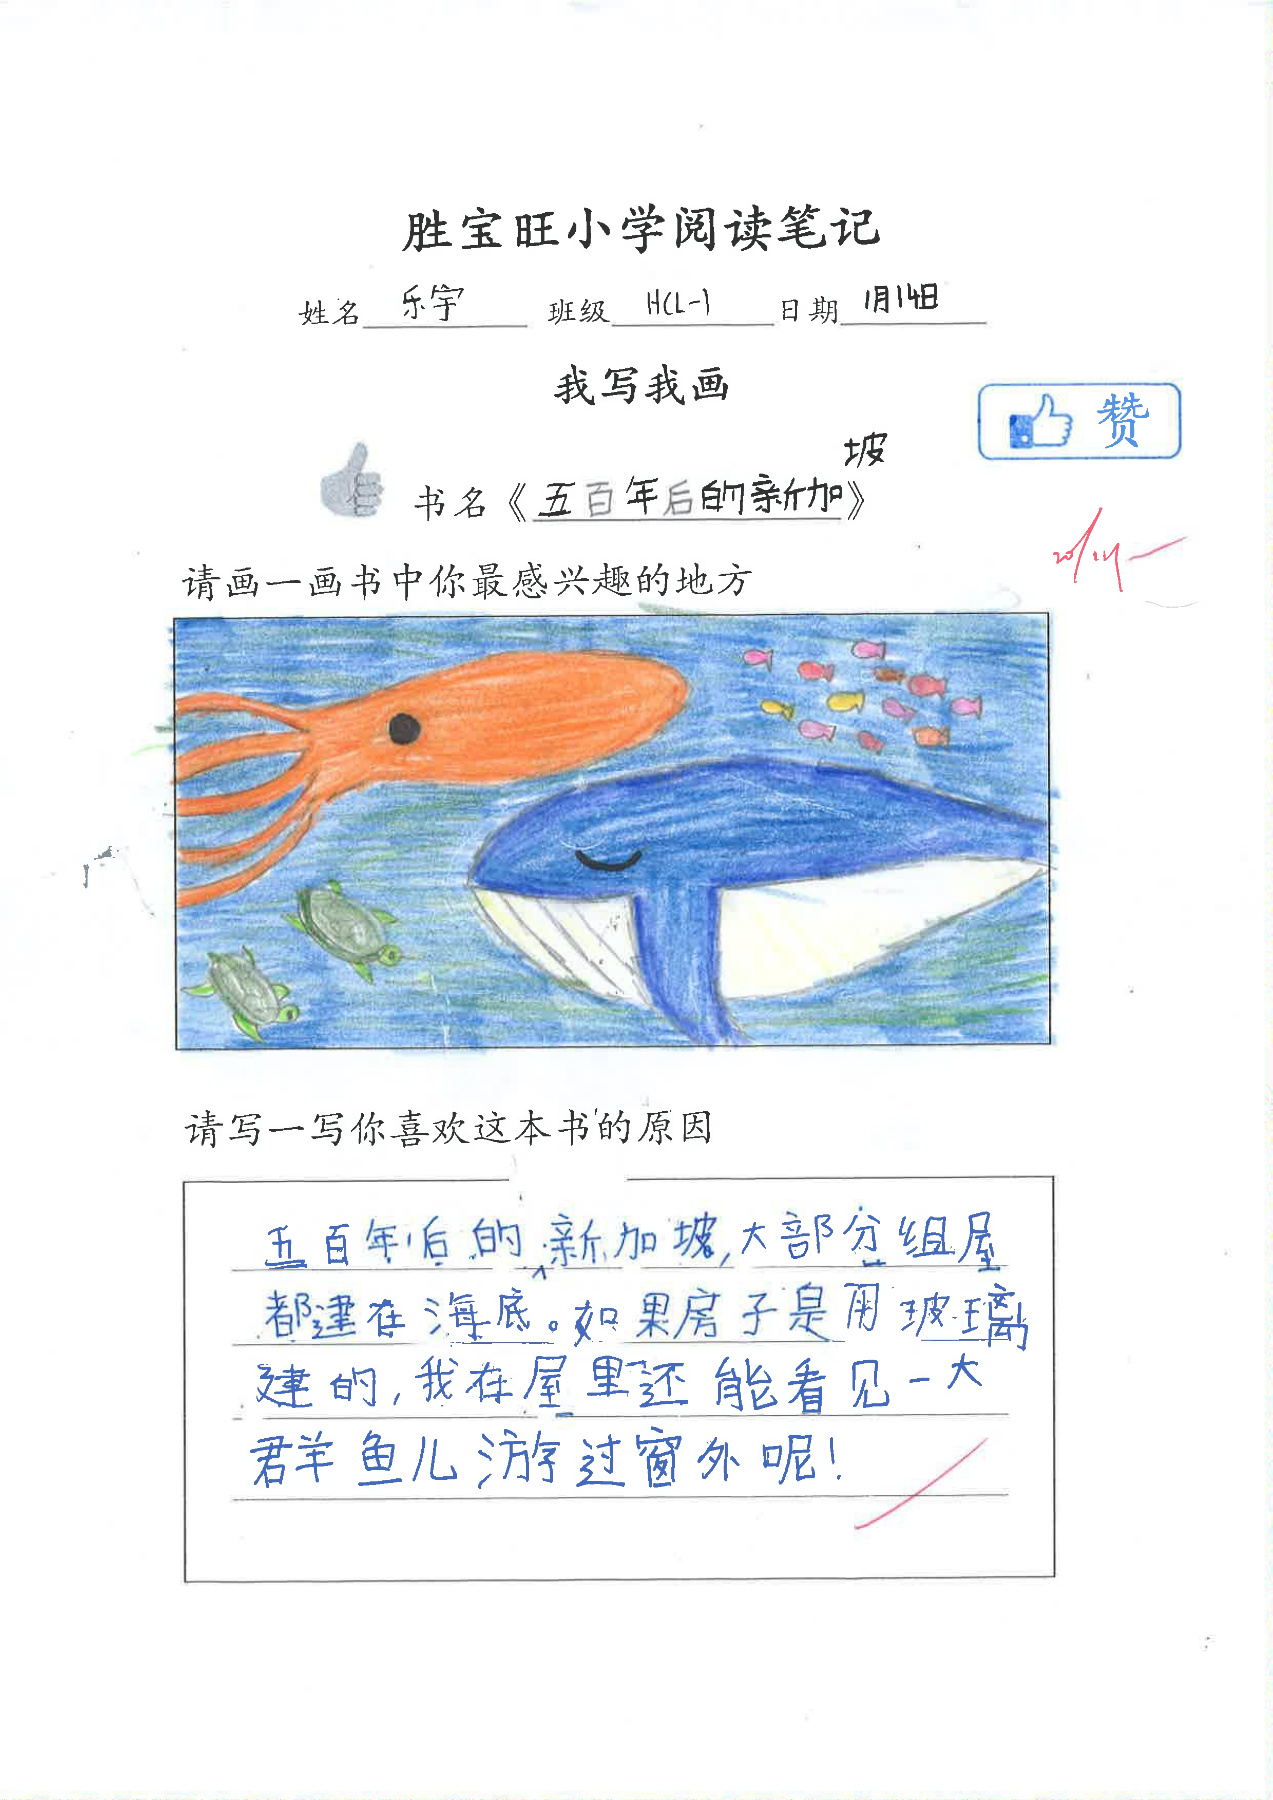 胜宝旺小学阅读笔记
姓名 乐宇 班级 HCL-1 日期 1月14日
我写我画
赞
书名《五百年后的新加坡》
请画一画书中你最感兴趣的地方
请写一写你喜欢这本书的原因
五百年后的新加坡，大部分组屋
都建在海底。如果房子是用玻璃
建的，我在屋里还能看见一大
群鱼儿游过窗外呢！